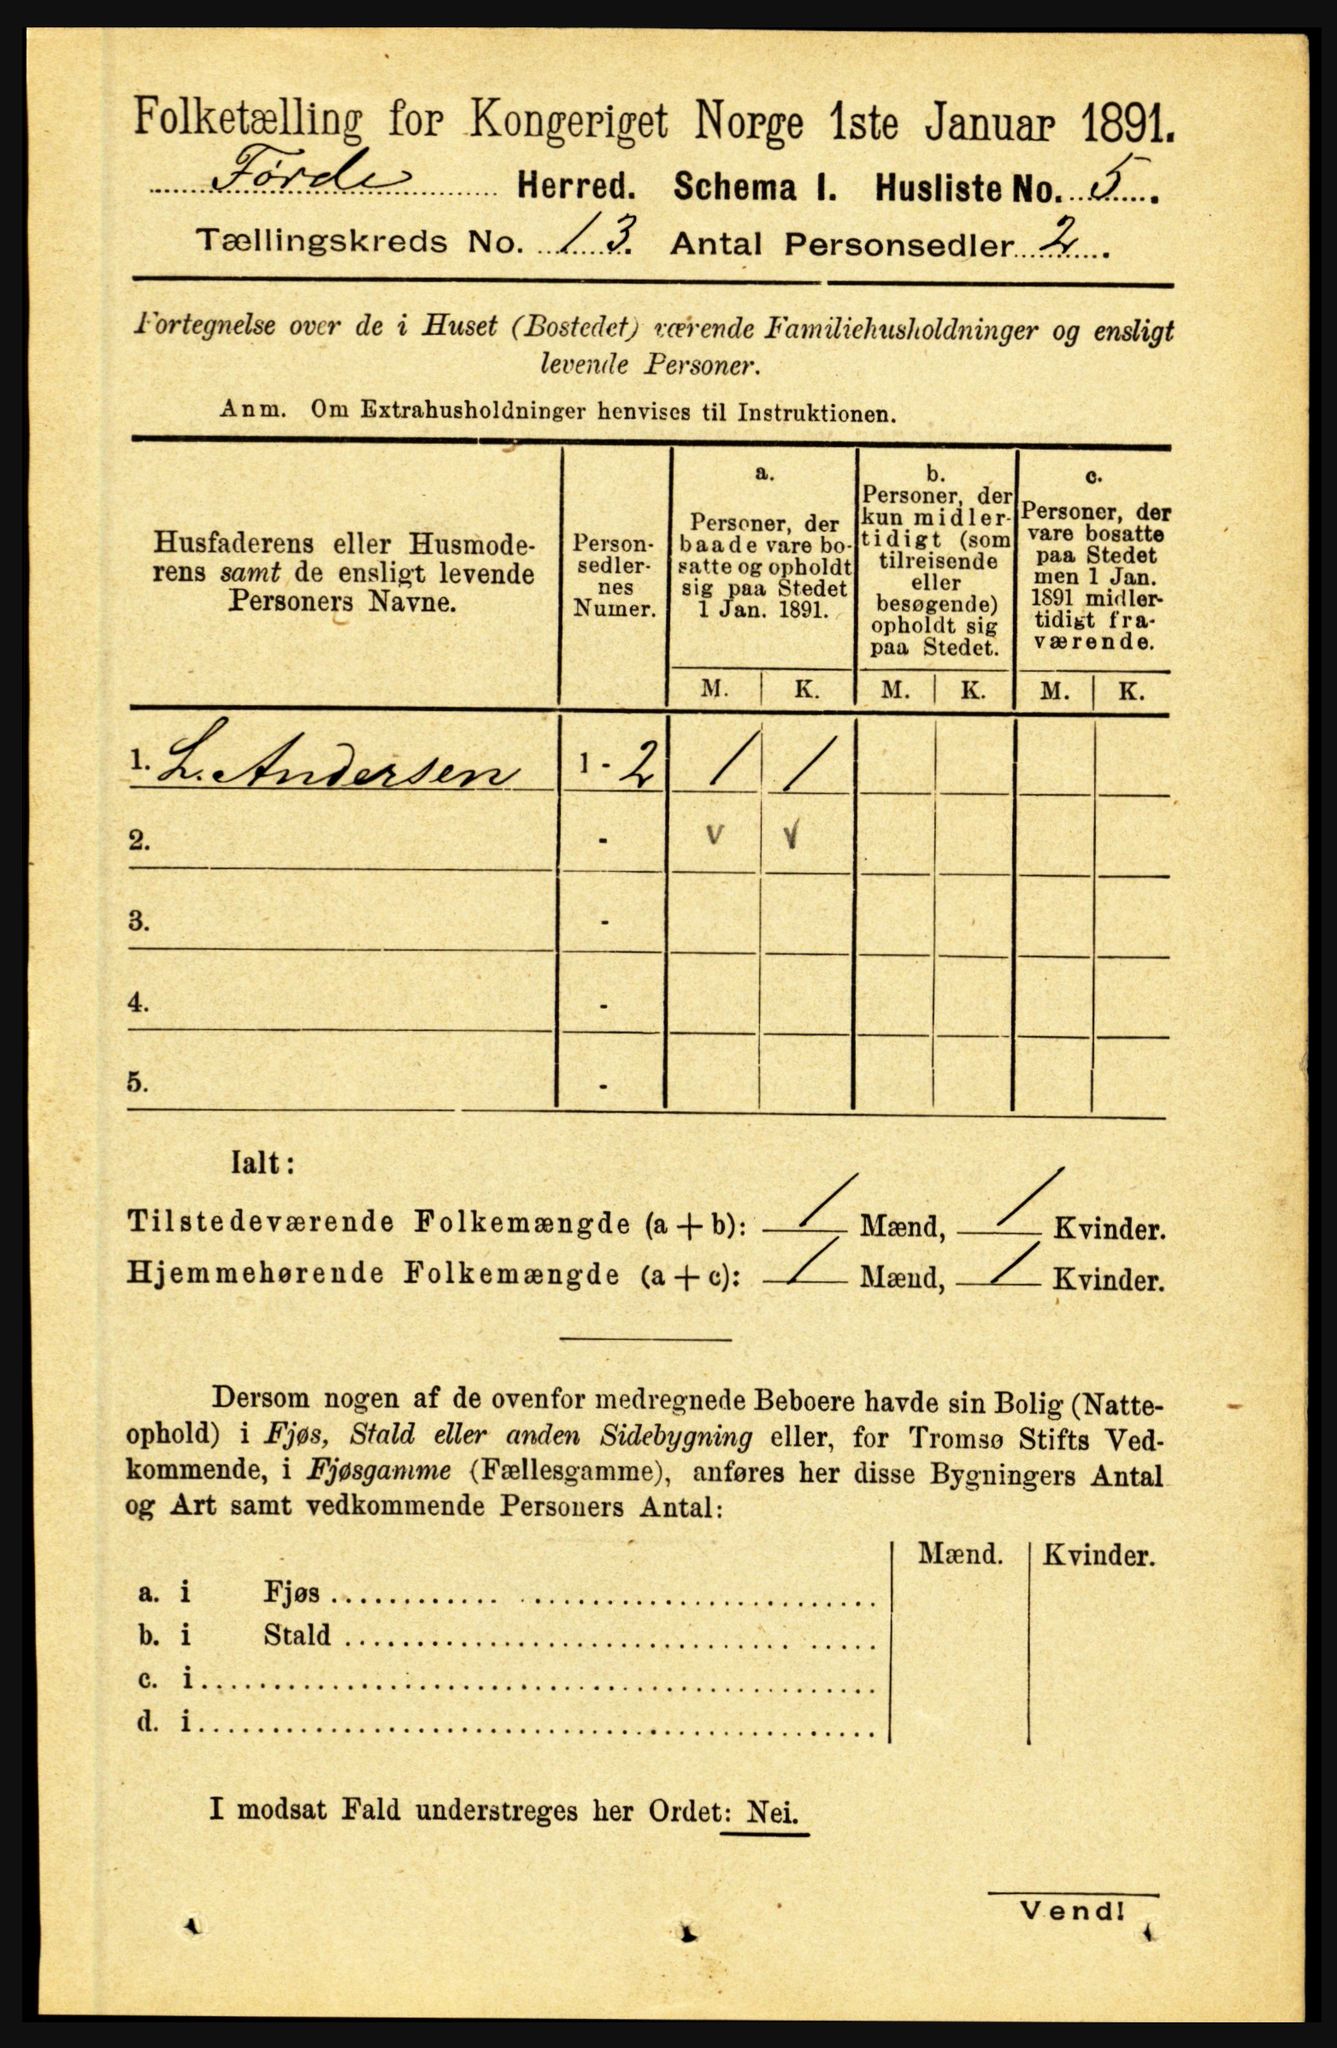 Folketælling for Kongeriget Norge 1ste Januar 1891.
Førde Herred. Schema I. Husliste No. 5.
Tællingskreds No. 13. Antal Personsedler 2.
Fortegnelse over de i Huset (Bostedet) værende Familiehusholdninger og ensligt
levende Personer.
Anm. Om Extrahusholdninger henvises til Instruktionen.
Husfaderens eller Husmode-
rens samt de ensligt levende
Personers Navne.
Person-
sedler-
nes
Numer.
a.
Personer, der
baade vare bo-
satte og opholdt
sig paa Stedet
1 Jan. 1891.
b.
Personer, der
kun midler-
tidigt (som
tilreisende
eller
besøgende)
opholdt sig
paa Stedet.
c.
Personer, der
vare bosatte
paa Stedet
men 1 Jan.
1891 midler-
tidigt fra-
værende.
M. K. M. K. M. K.
1. L. Andersen 1 - 2 1 1
2. - v v
3. -
4. -
5. -
Ialt:
Tilstedeværende Folkemængde (a + b): 1 Mænd, 1 Kvinder.
Hjemmehørende Folkemængde (a + c): 1 Mænd, 1 Kvinder.
Dersom nogen af de ovenfor medregnede Beboere havde sin Bolig (Natte-
ophold) i Fjøs, Stald eller anden Sidebygning eller, for Tromsø Stifts Ved-
kommende, i Fjøsgamme (Fællesgamme), anføres her disse Bygningers Antal
og Art samt vedkommende Personers Antal:
Mænd. Kvinder.
a. i Fjøs
b. i Stald
c. i
d. i
I modsat Fald understreges her Ordet: Nei.
Vend!